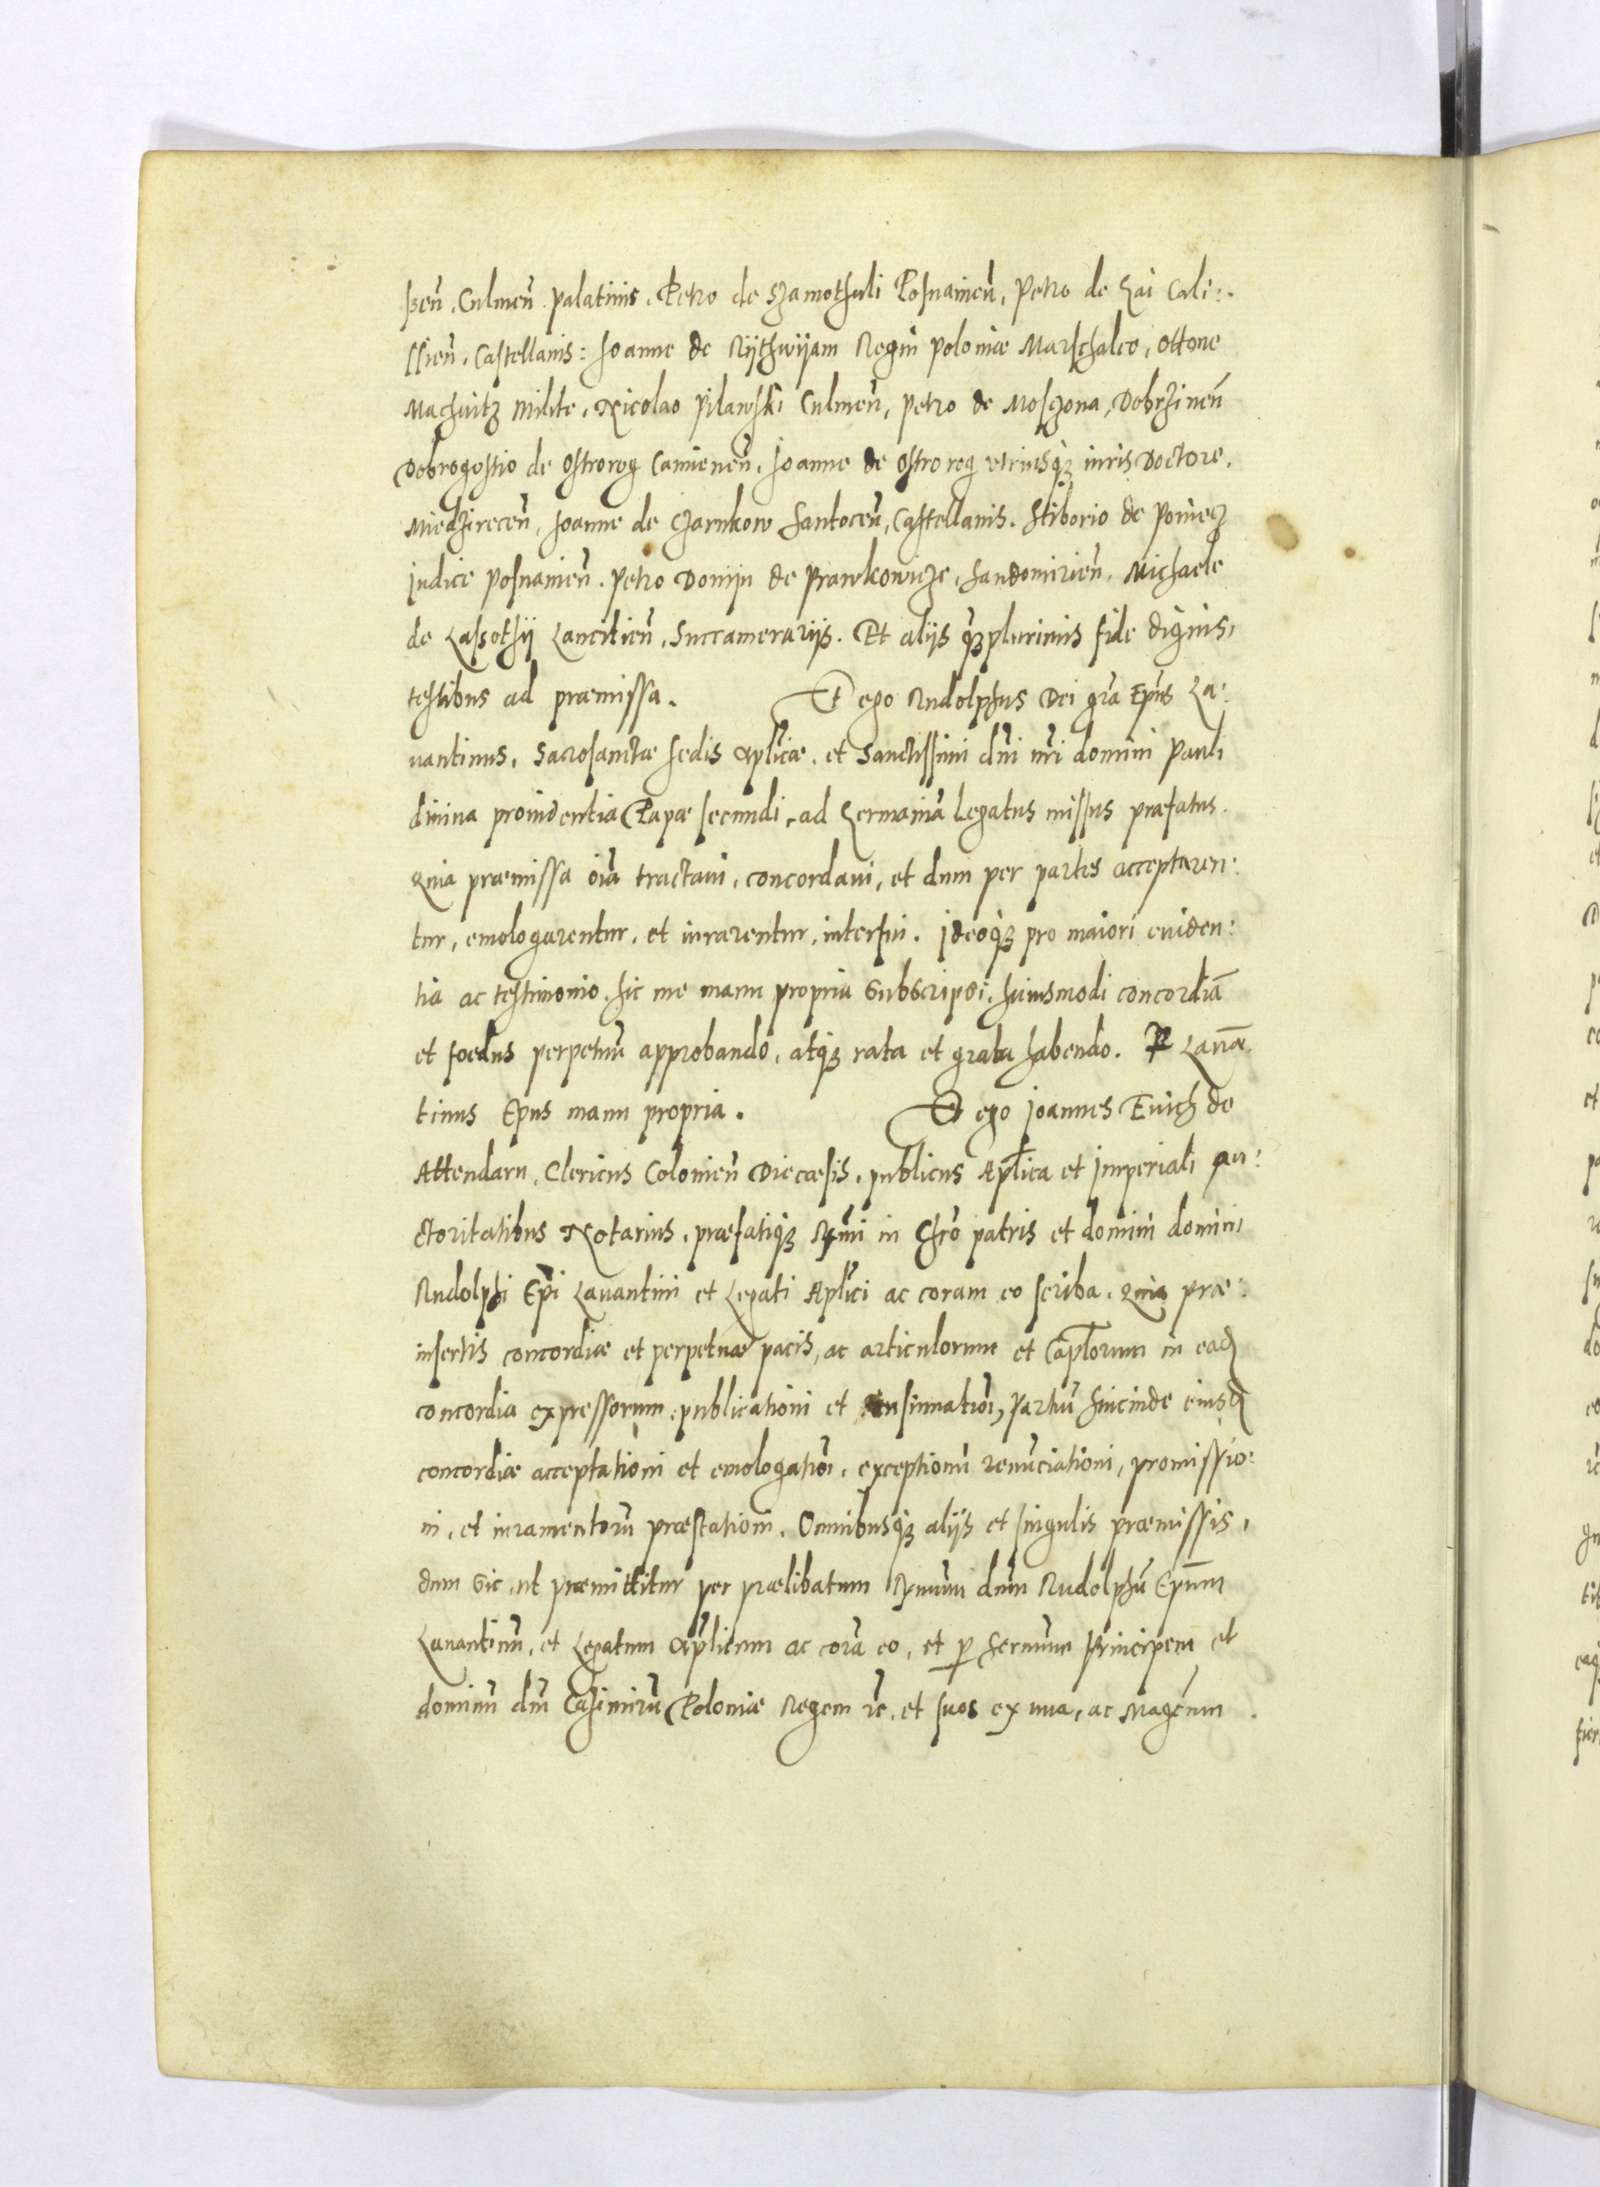 ßen̄, Culmen̄ palatinis, Petro de Szamothuli Posnanien̄, Petro de Gai Cali:
ssien̄, Castellanis: Joanne de Rijthwijam Regni poloniæ Marschalco, Ottone
Machuitz Milite, Nicolao Pilawski Culmen̄, Petro de Moszona, Dobrzinen̄
Dobrogostio de Ostrorog Camienen̄, Joanne de Ostrorog vtriusq̢ iuris Doctore,
Miedzirecen̄, Joanne de Czarnkow Santocen̄, Castellanis. Stiborio de Poniecz
Judice Posnanien̄. Petro Donijn de Prawkowicze, Sandomirien̄, Michaele
de Lassothij Lancitien̄, Succamerarijs. Et alijs q̢plurimis fide dignis,
testibus ad præmissa. Et ego Rudolphus Dei gr̄a Ep̄us La:
uantinus, Sacrosanctæ sedis ap̄licæ, et Sanctissimi dn̄i nr̄i domini Pauli
diuina prouidentia Papæ secundi, ad Germaniā Legatus missus præfatus.
Quia præmissa oīa tractaui, concordaui, et dum per partes acceptaren:
tur, emologarentur, et iurarentur, interfui. Ideoq̢ pro maiori euiden:
tia ac testimonio, hic me manu propria subscripsi, huiusmodi concordiā
et foedus perpetuū approbando, atq̢ rata et grata habendo. R Lauā
tinus Ep̄us manu propria. Et ego Joannes Euich de
Attendarn, Clericus Colonien̄ Diecæsis, publicus Ap̄lica et Imperiali au:
ctoritatibus Notarius, præfatiq̢ Rm̄i in Chr̄o patris et domini domini
Rudolphi Ep̄i Lauantini et Legati Ap̄lici ac coram eo scriba, Quia præ:
insertis concordiæ et perpetuæ pacis, ac articulorum et Cap̄lorum in ead̄
concordia expressorum, publicationi et insinuatiōi, Partiū hincinde eiusd̄
concordiæ acceptationi et emologatiōi, exceptionū renūciationi, promissio:
ni, et iuramentorū præstationi, Omnibusq̢ alijs et singulis præmissis,
dum sic, ut præmittitur per prælibatum Rm̄um dn̄m Rudolphū Ep̄um
Lauantinū, et Legatum ap̄licum ac corā eo, et p̱ Sermum Principem et
dominū dn̄m Casimirū Poloniæ Regem ꝛc, et suos ex una, ac Magcum